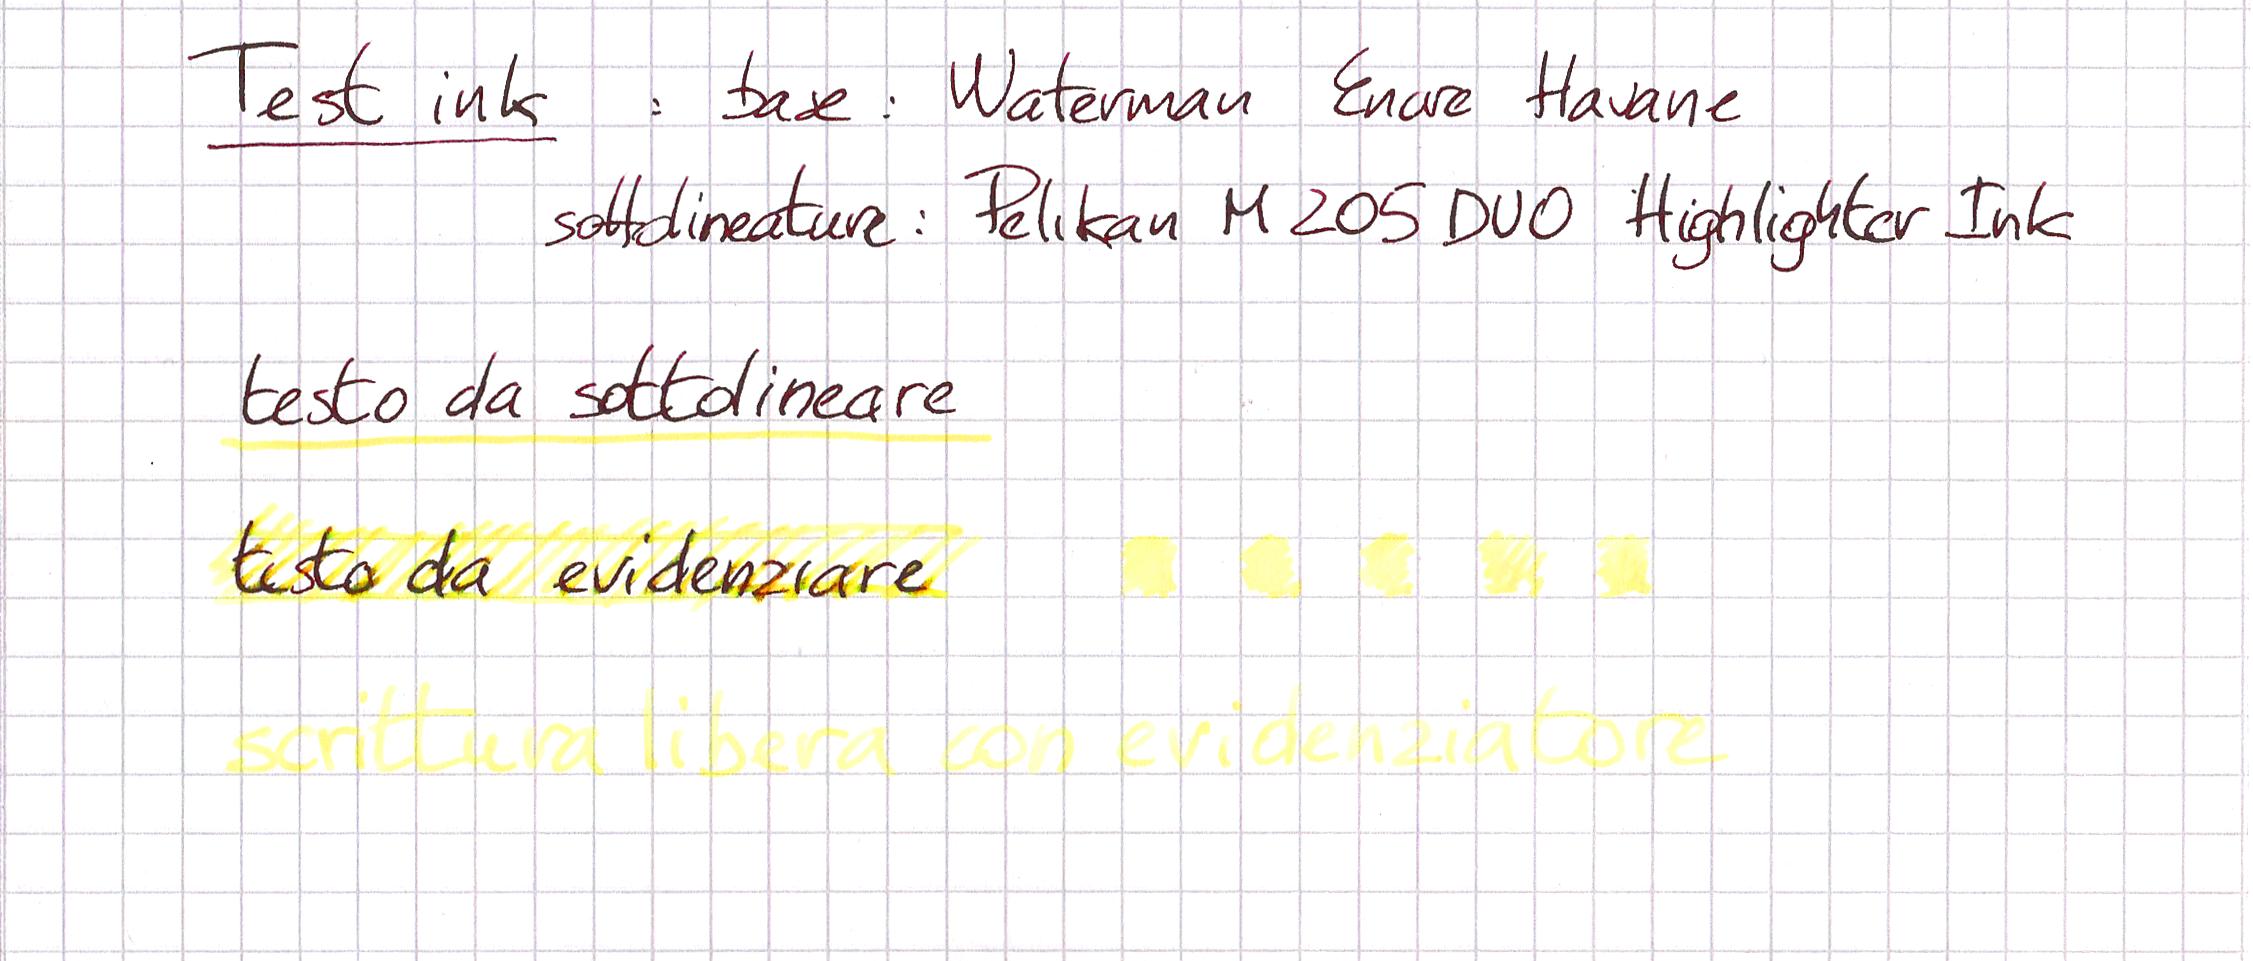 Test ink : base : Waterman Encre Havane
sottolineature : Pelikan M 205 DUO Highlighter Ink
testo da sottolineare
testo da evidenziare
scrittura libera con evidenziatore